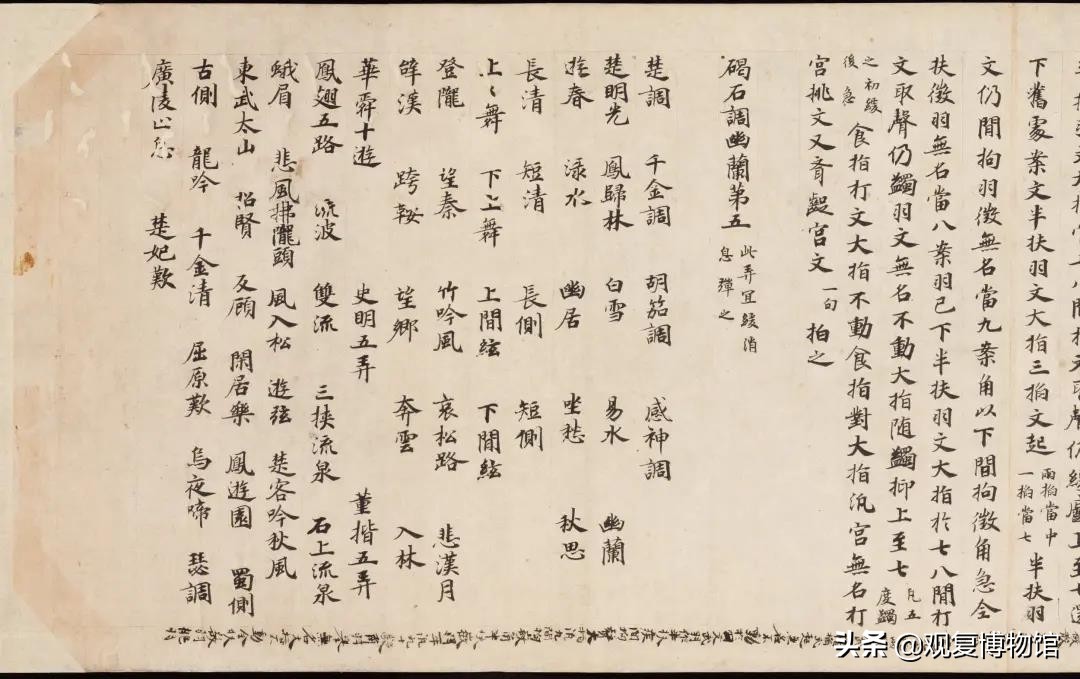 下舊處案文半扶羽文大指三搯文起 兩搯當中一搯當七 半扶羽
文仍閒拘羽徵無名當九案角以下閒拘徵角急全
扶徵羽無名當八案羽已下半扶羽文大指於七八閒打
文取聲仍蠲羽文無名不動大指随蠲抑上至七 凡五度蠲
之初緩後急 食指打文大指不動食指對大指汎宮無名打
宮挑文又齊齪宮文 一句 拍之
碣石調幽蘭第五 此弄宜緩消息彈之
楚調 千金調 胡笳調 感神調
楚明光 鳳歸林 白雪 易水 幽蘭
遊春 淥水 幽居 坐愁 秋思
長清 短清 長側 短側
上〻舞 下上舞 上閒絃 下閒絃
登隴 望秦 竹吟風 哀松路 悲漢月
辭漢 跨鞍 望鄉 奔雲 入林
華舜十遊 史明五弄 董揩五弄
鳳翅五路 流波 雙流 三挾流泉 石上流泉
蛾眉 悲風拂隴頭 風入松 遊弦 楚客吟秋風
東武太山 招賢 反顧 閑居樂 鳳遊園 蜀側
古側 龍吟 千金清 屈原歎 烏夜啼 瑟調
廣陵止息 楚妃歎
头条 @观复博物馆